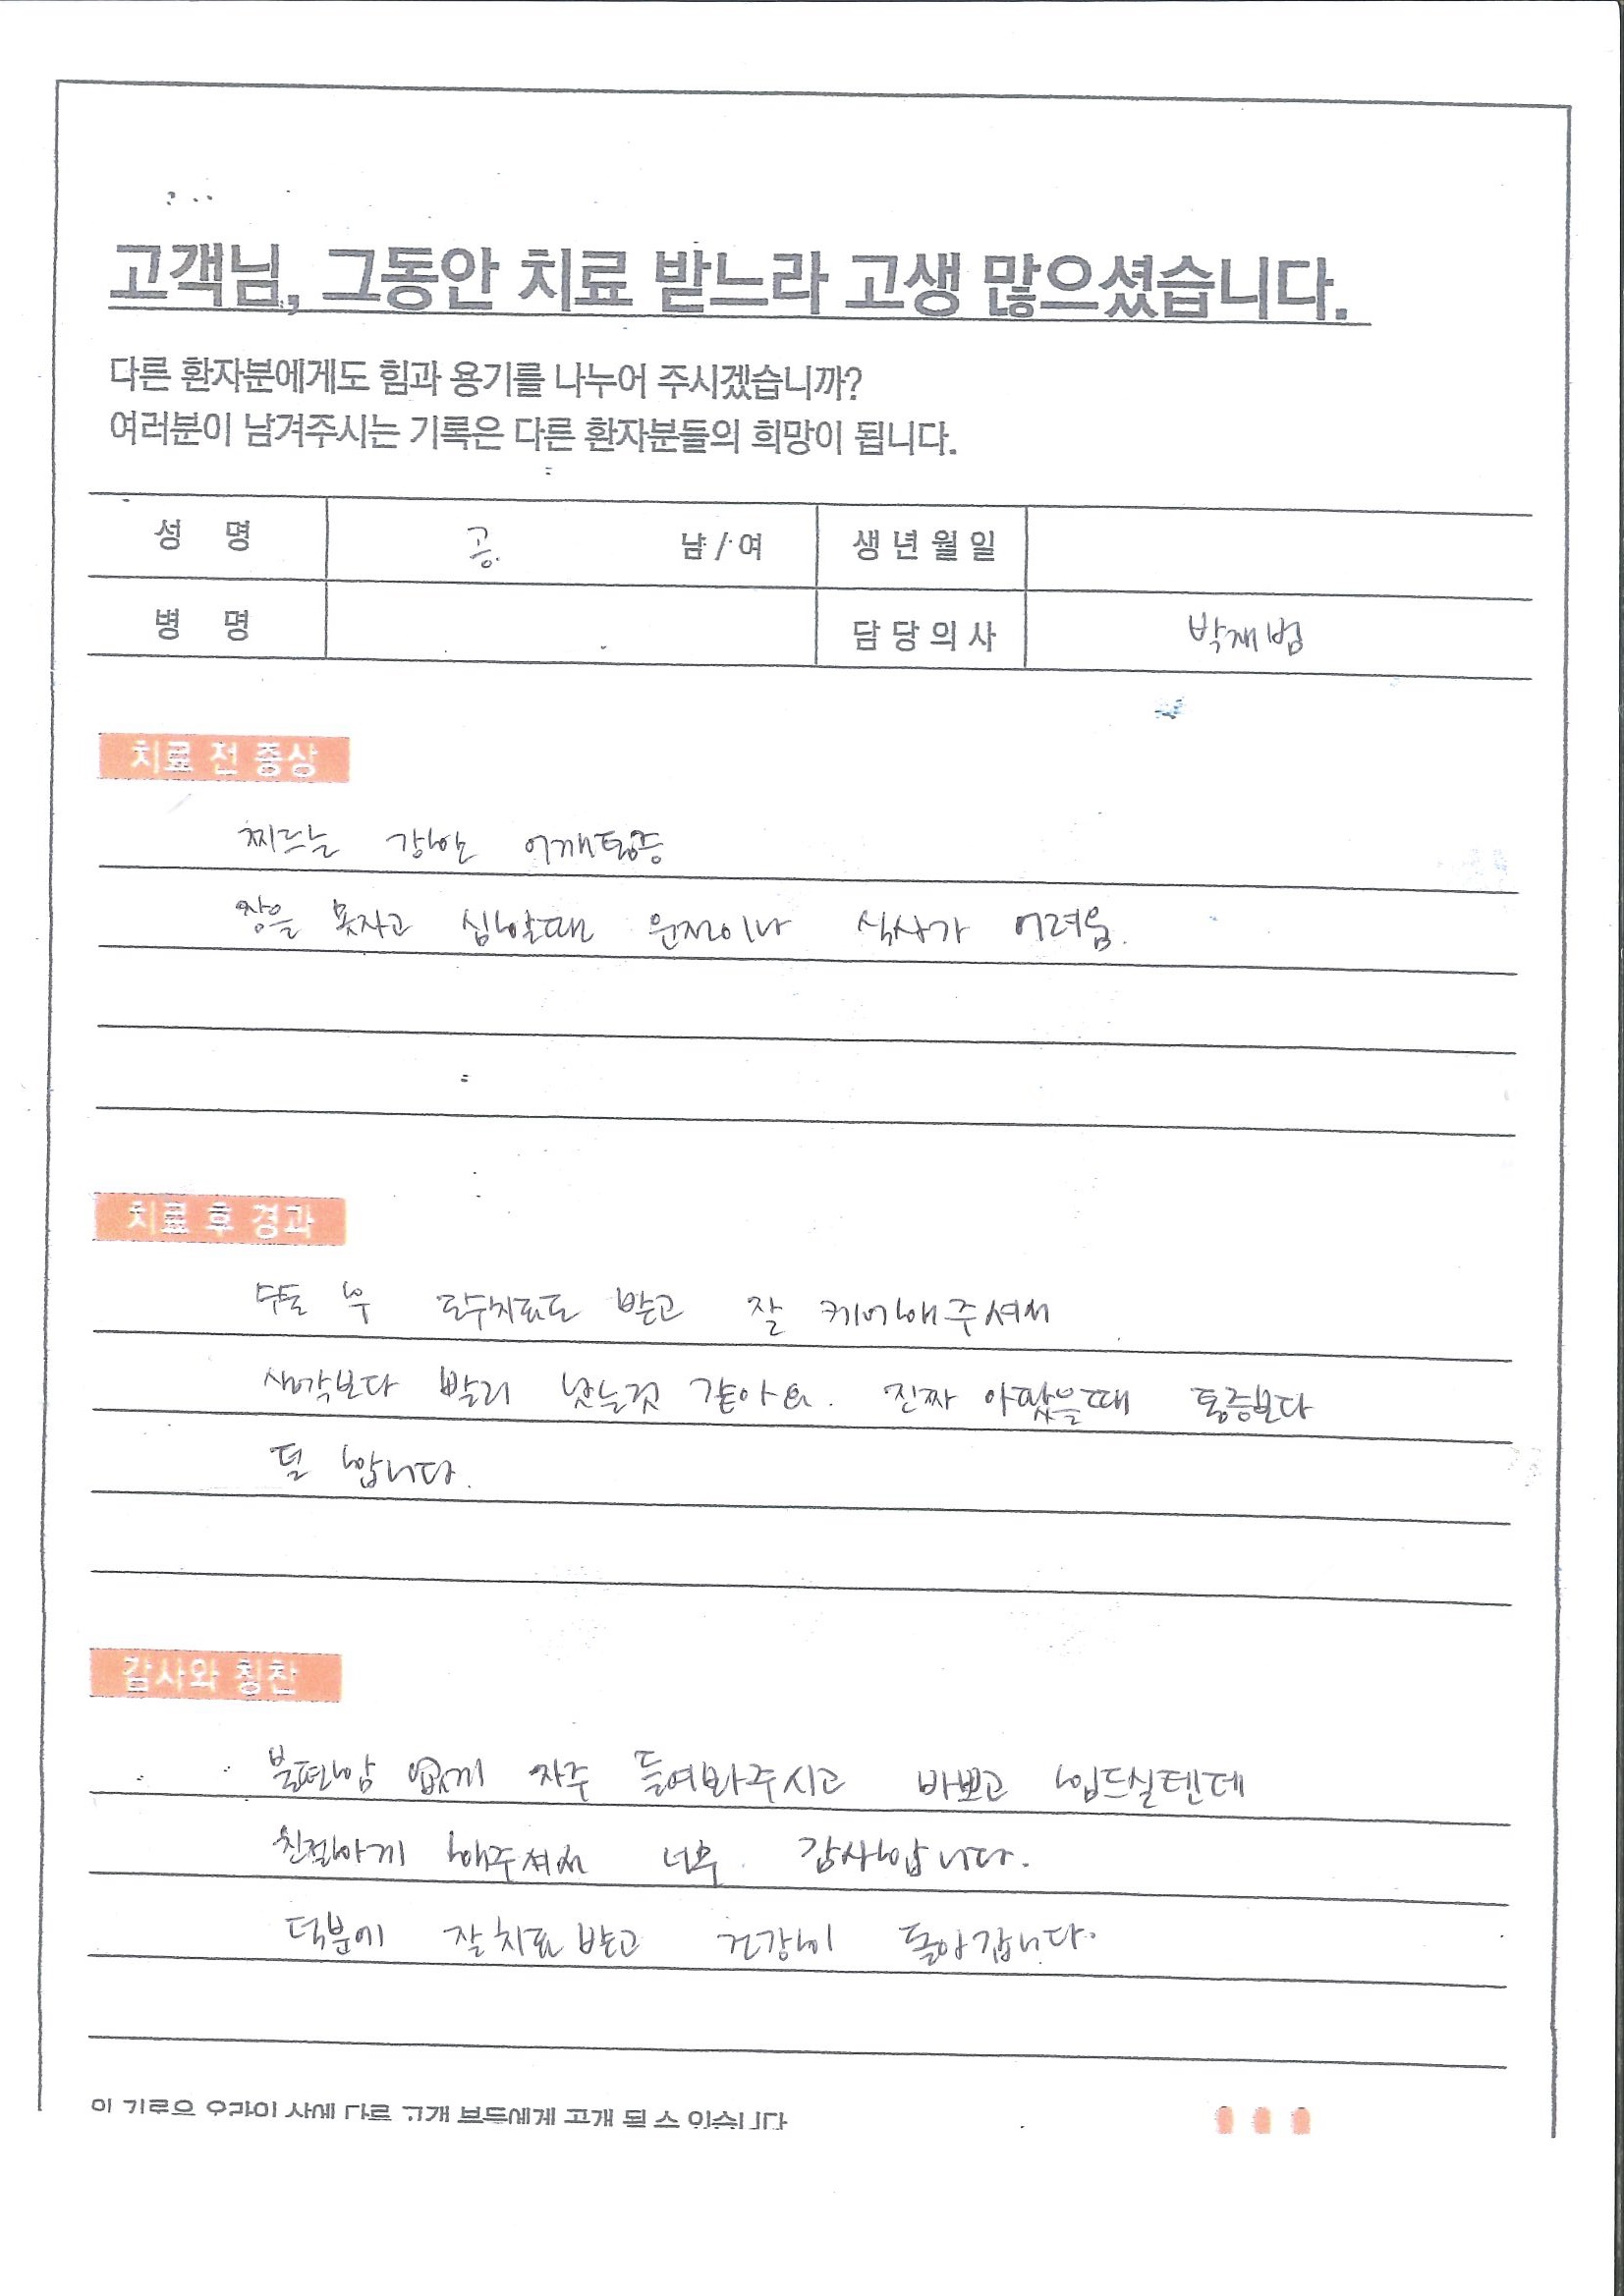 고객님, 그동안 치료 받느라 고생 많으셨습니다.
다른 환자분에게도 힘과 용기를 나누어 주시겠습니까?
여러분이 남겨주시는 기록은 다른 환자분들의 희망이 됩니다.
성 명 공 남/여 생년월일
병 명 담당의사 박재범
치료 전 증상
찌르는 강한 어깨통증
잠을 못자고 심할때 운전이나 식사가 어려움.
치료 후 경과
수술 후 도수치료도 받고 잘 케어해주셔서
생각보다 빨리 낫는것 같아요. 진짜 아팠을때 통증보다
덜 합니다.
감사와 칭찬
불편함 없게 자주 들여봐주시고 바쁘고 힘드실텐데
친절하게 해주셔서 너무 감사합니다.
덕분에 잘 치료 받고 건강히 돌아갑니다.
다른 고객 분들에게 공개 될 수 있습니다